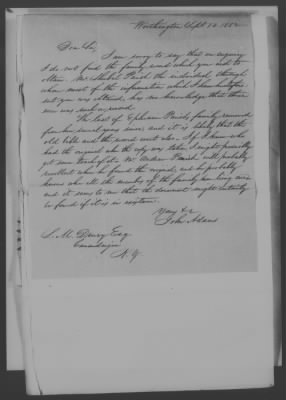 Worthington Sept 12. 1852
Dear Sir,
I am sorry to say that on inquiry
I do not find the family record which you wish to
obtain. Mr. Parish the individual through
whom most of the information which I have
sent you was obtained, has no knowledge that there
ever was such a record.
The last of Ephraim Parish's family removed
from here several years since, and it is likely that the
old bible and the record went also. If I knew who
had the original when the copy was taken I might possibly
get some track of it. Mr. Parish will probably
recollect where he found the original, and he probably
knows where all the members of the family are living now
and it seems to me that the document might certainly
be found if it is in existence.
Yours &c
John Adams
S. M. Drury Esq
Canandaigua
N.Y.